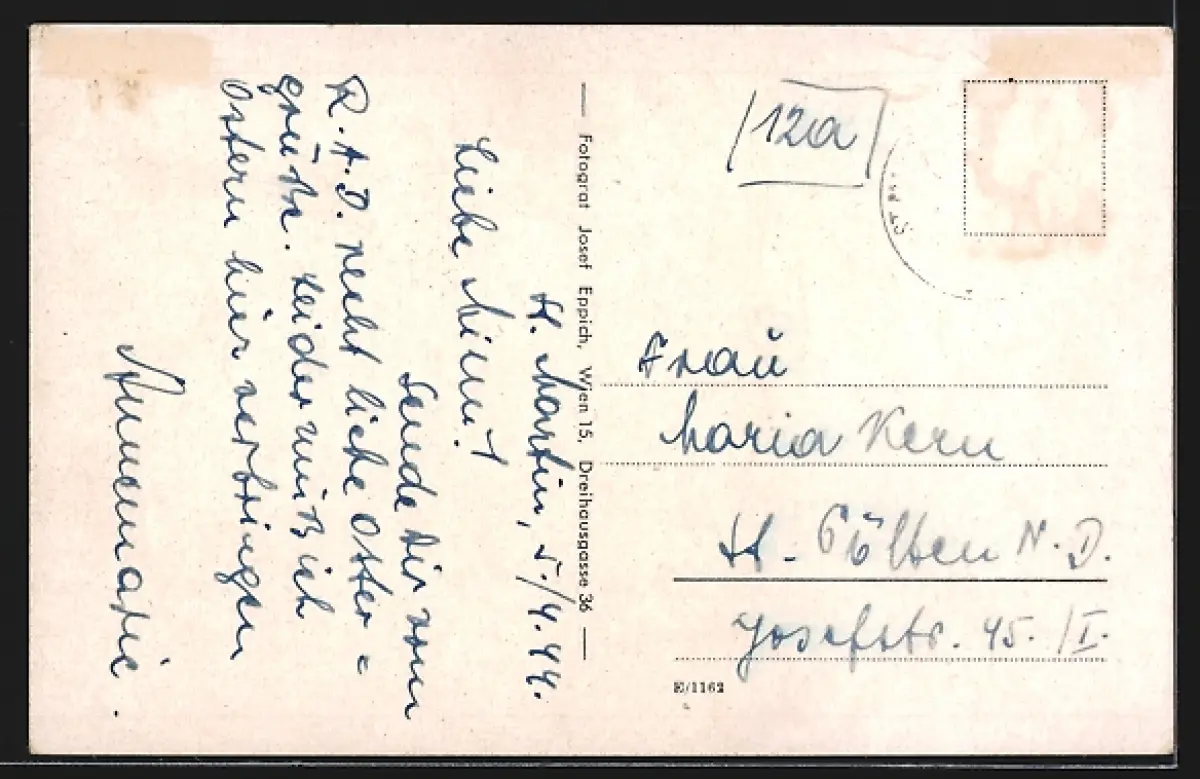 St. Martin, 5./4.44.
Liebe Mimi!
Sende dir vom
R.A.D. recht liebe Oster=
grüße. Leider muß ich
Ostern hier verbringen
Annemarie.
— Fotograf Josef Eppich, Wien 15, Dreihausgasse 36 —
12a
Frau
Maria Kern
St. Pölten N.D.
Josefstr. 45./I.
E/1162